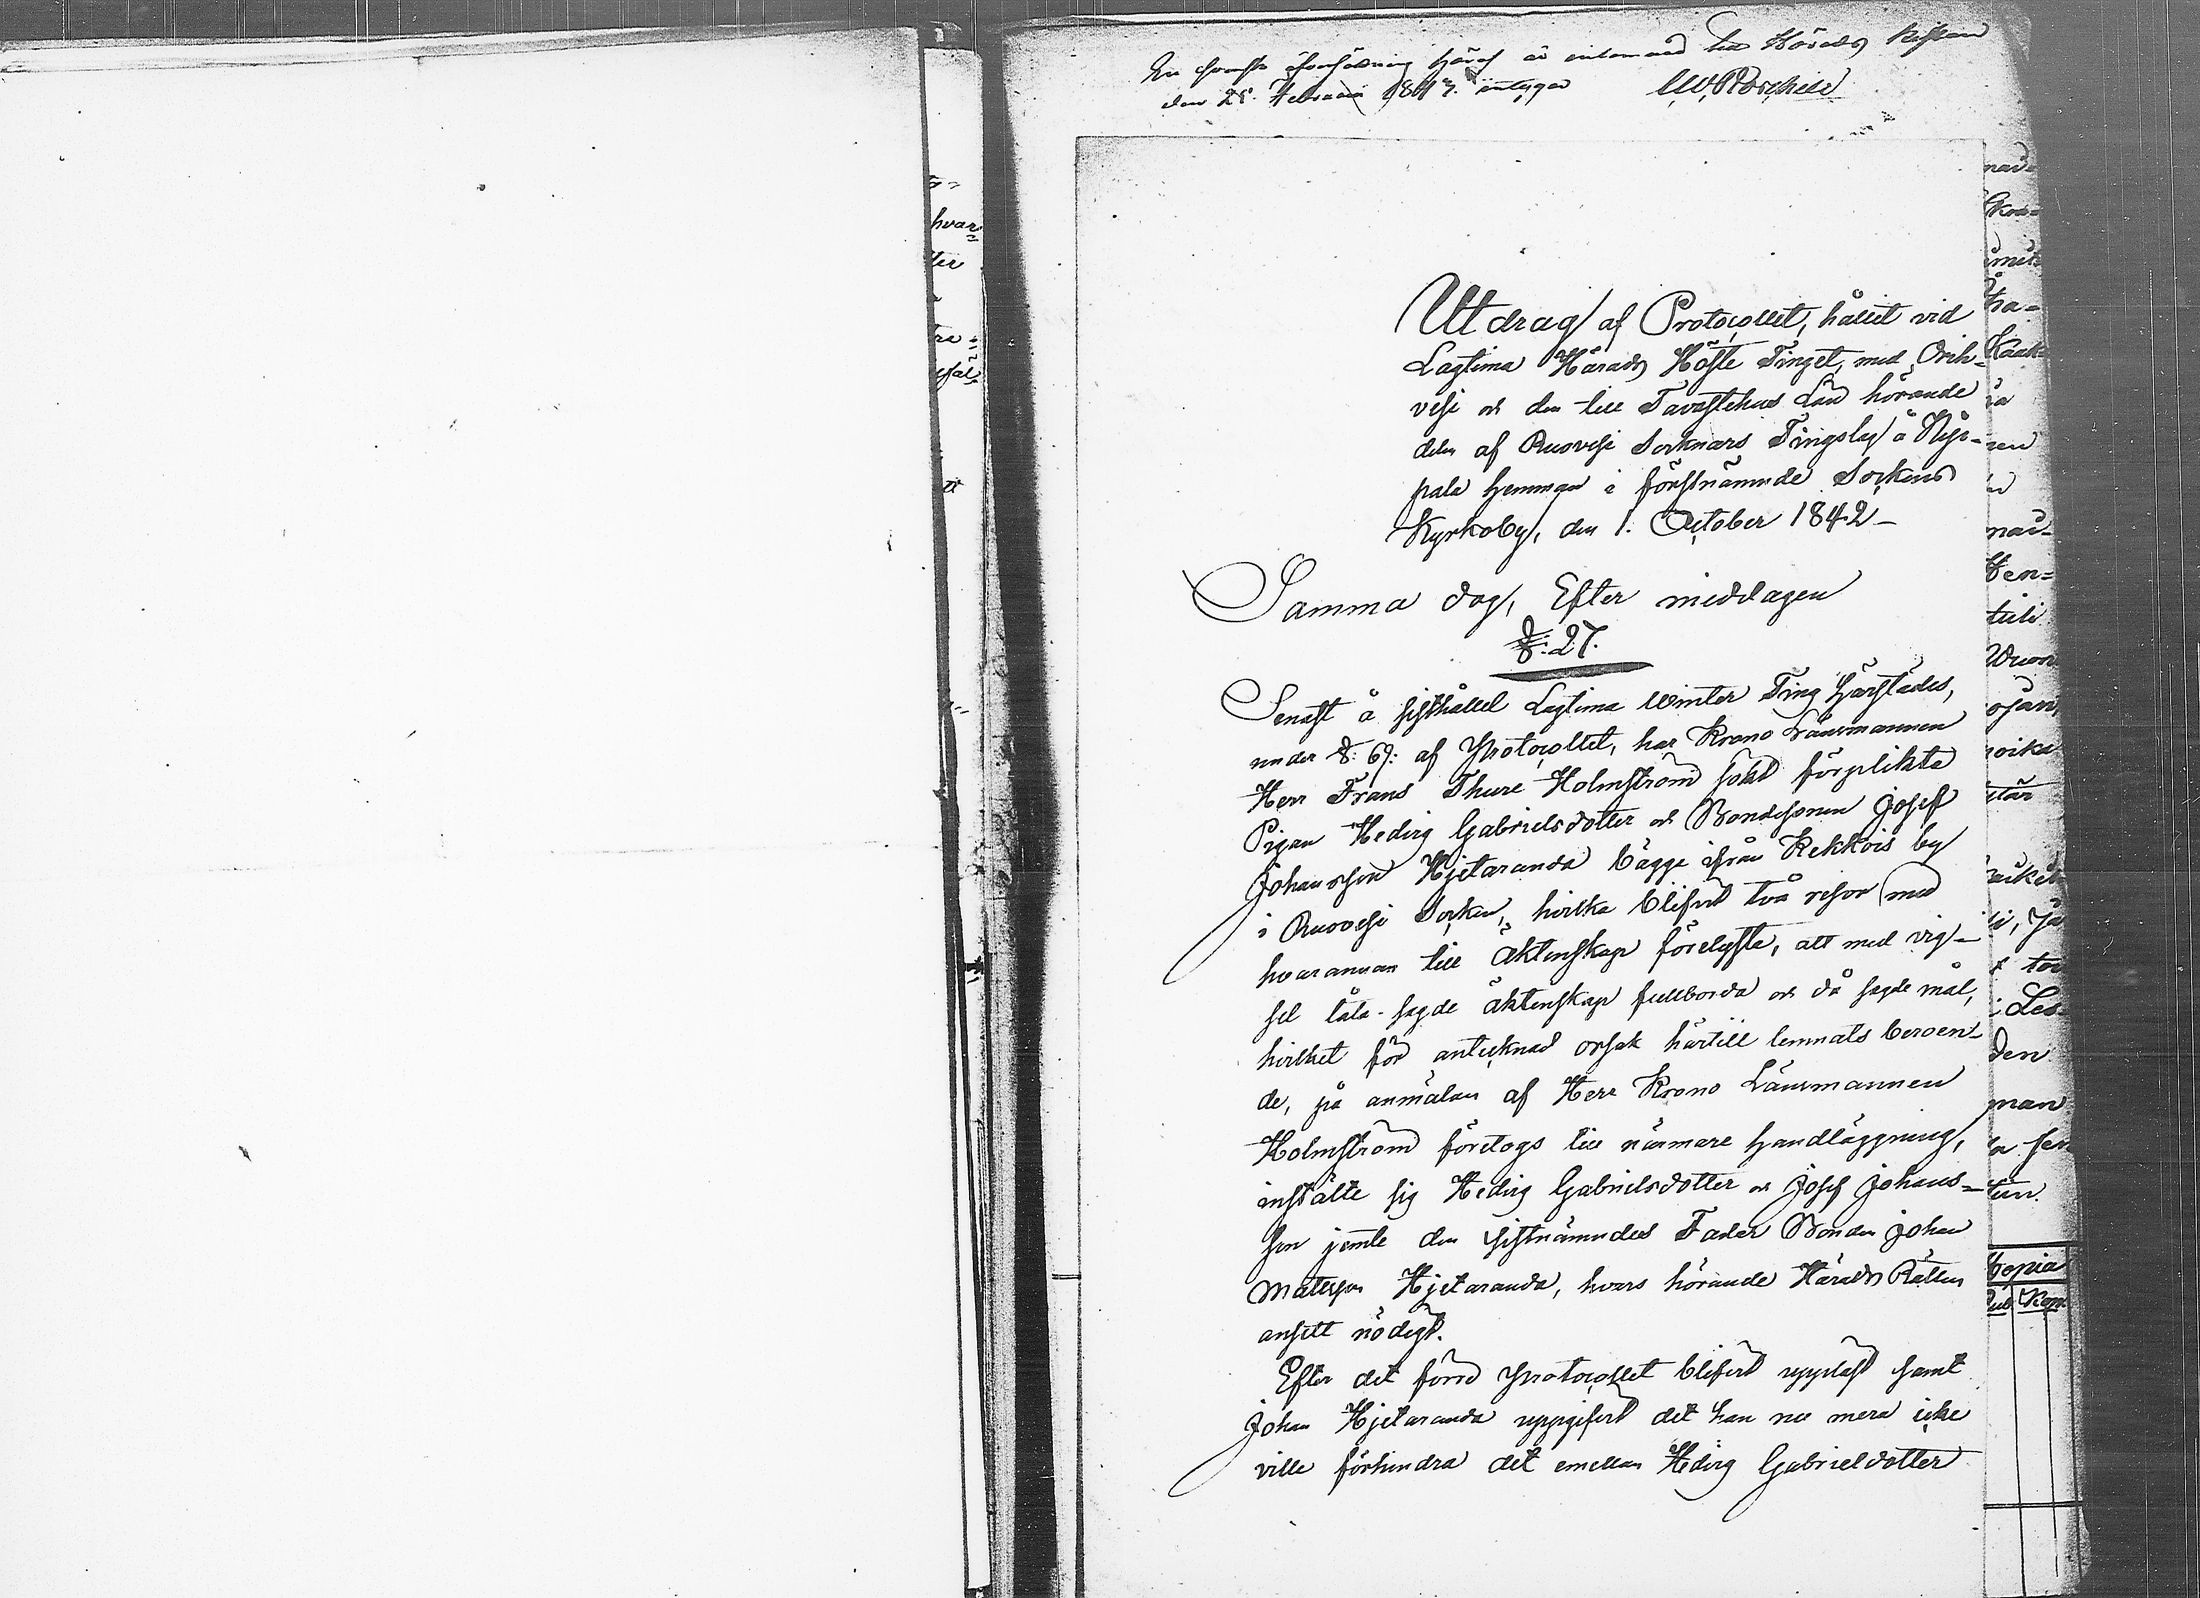 En svensk öfversättning häraf är inlemnad till Härads Kistan
den 25. Februarii 1843. intygar
Utdrag af Protocollet, hållit vid
Lagtima Härads Höste Tinget, med Orih-
vesi och den till Tavastehus Län hörande
delen af Ruovesi Socknars Tingslag å Nys-
pala hemman i förstnämnde Sockens
Kyrkoby, den 1. October 1842-
Samma dag, Efter middagen
§: 27.
Senast å sisthållet Lagtima Winter Ting härstädes,
under §: 67: af Protocollet, har Krono Länsmannen
Herr Frans Thure Holmström sökt förplikta
Pigan Hedvig Gabrielsdotter och Bondesonen Josef
Johansson Hjetaranda bägge ifrån Kekkois by
i Ruovesi Socken, hvilka blifvit två resor med
hvarannan till äktenskap förelysta, att med vig-
sel låta sagde äktenskap fullborda och då sagde mål,
hvilket för antecknad orsak härtill lemnats beroen-
de, på anmälan af Herr Krono Länsmannen
Holmström företogs till närmare handläggning,
instälte sig Hedvig Gabrielsdotter och Josef Johans-
son jemte den sistnämndes Fader Bonden Johan
Matsson Hjetaranda, hvars hörande Härads Rätten
ansett nödigt.
Efter det förra Protocollet blifvit uppläst samt
Johan Hjetaranda uppgifvit det han nu mera icke
ville förhindra det emellan Hedvig Gabrielsdotter